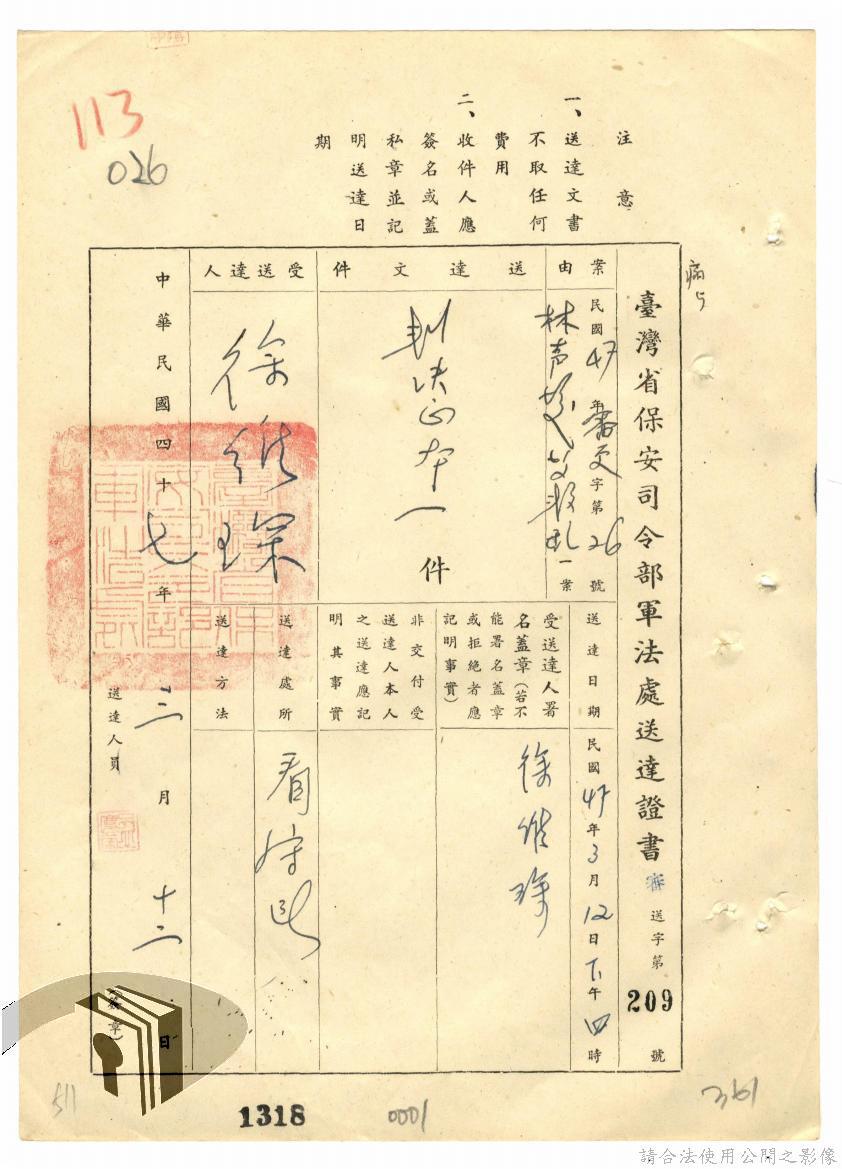 113
026
注意
一、送達文書
不取任何
費用
二、收件人應
簽名或蓋
私章並記
明送達日
期
臺灣省保安司令部軍法處送達證書
審送字第209號
案由
民國47年審更字第26號
林声發等叛乱一案
送達文件
判決正本一件
受送達人
徐維琛
送達日期
民國47年3月12日下午四時
受送達人署
名蓋章(若不
能署名蓋章
或拒絕者應
記明事實)
徐維琛
非交付受
送達人本人
之送達應記
明其事實
送達處所
看守所
送達方法
中華民國四十七年三月十二日
送達人員
(簽章)
511
1318
0001
361
請合法使用公開之影像